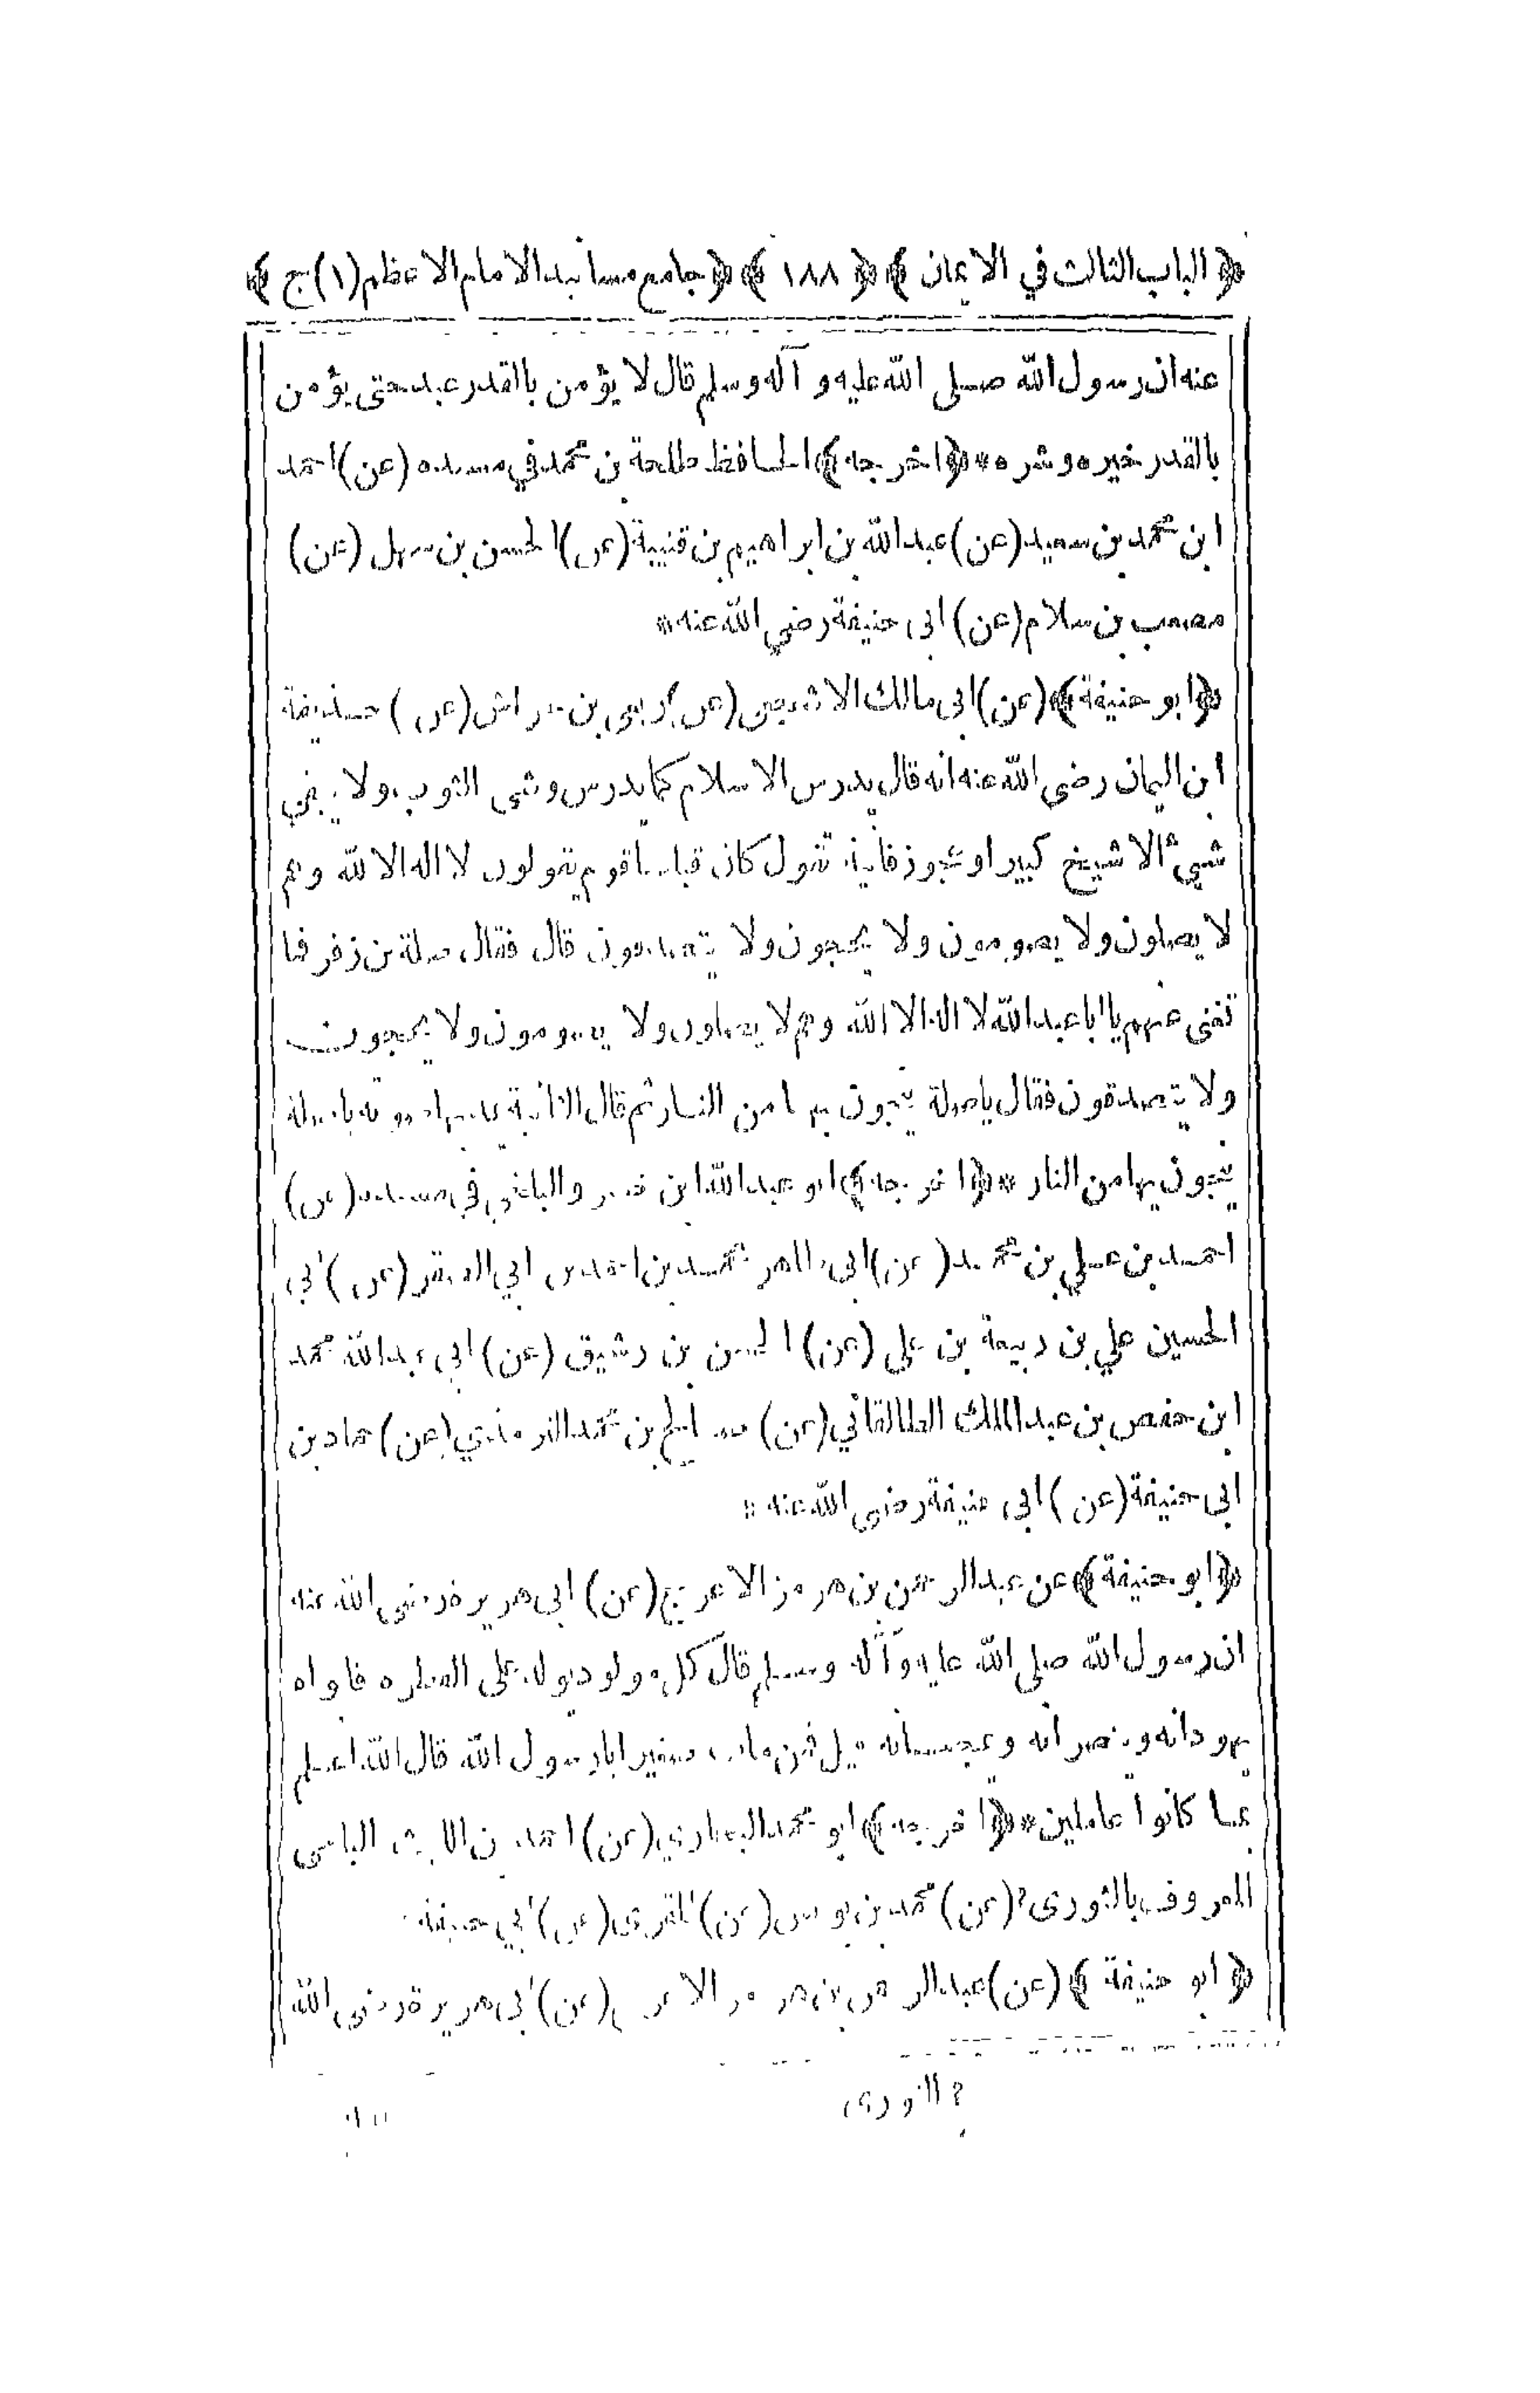 ﴿ الباب الثالث في الايمان ﴾ ﴿ ١٨٨ ﴾ ﴿ جامع مسانيد الامام الاعظم (١) ج ﴾
عنه ان رسول الله صلى الله عليه و آله وسلم قال لا يؤمن بالقدر عبد حتى يؤمن
بالقدر خيره وشره * ﴿ اخرجه ﴾ الحافظ طلحة بن محمد في مسنده (عن) احمد
ابن محمد بن سعيد (عن) عبد الله بن ابراهيم بن قتيبة (عن) الحسن بن سهل (عن)
مصعب بن سلام (عن) ابى حنيفة رضي الله عنه *
﴿ ابو حنيفة ﴾ (عن) ابى مالك الاشجعي (عن) ربعى بن حراش (عن) حذيفة
ابن اليمان رضى الله عنه انه قال يدرس الاسلام كما يدرس وشى الثوب ولا يبقى
شيئ الا شيخ كبير او عجوز فانية تقول كان قبلنا قوم يقولون لا اله الا الله وهم
لا يصلون ولا يصومون ولا يحجون ولا يتصدقون قال فقال صلة بن زفر فما
تغنى عنهم يا ابا عبد الله لا اله الا الله وهم لا يصلون ولا يصومون ولا يحجون
ولا يتصدقون فقال يا صلة ينجون بها من النار ثم قال الثانية يا صلة
ينجون بها من النار * ﴿ اخرجه ﴾ ابو عبد الله ابن خسرو البلخي في مسنده (عن)
احمد بن علي بن محمد (عن) ابى طاهر محمد بن احمد بن ابي الصقر (عن) ابى
الحسين علي بن ربيعة بن علي (عن) الحسن بن رشيق (عن) ابى عبد الله محمد
ابن حفص بن عبد الملك الطالقاني (عن) صالح بن محمد الترمذي (عن) حماد بن
ابى حنيفة (عن) ابى حنيفة رضى الله عنه *
﴿ ابو حنيفة ﴾ عن عبد الرحمن بن هرمز الاعرج (عن) ابى هريرة رضى الله عنه
ان رسول الله صلى الله عليه وآله وسلم قال كل مولود يولد على الفطرة فابواه
يهودانه وينصرانه ويمجسانه قيل فمن مات صغيرا يا رسول الله قال الله اعلم
بما كانوا عاملين * ﴿ اخرجه ﴾ ابو محمد البخاري (عن) احمد بن الليث البلخى
المعروف بالثورى ? (عن) محمد بن يونس (عن) المقرى (عن) ابي حنيفة
﴿ ابو حنيفة ﴾ (عن) عبد الرحمن بن هرمز الاعرج (عن) ابى هريرة رضى الله